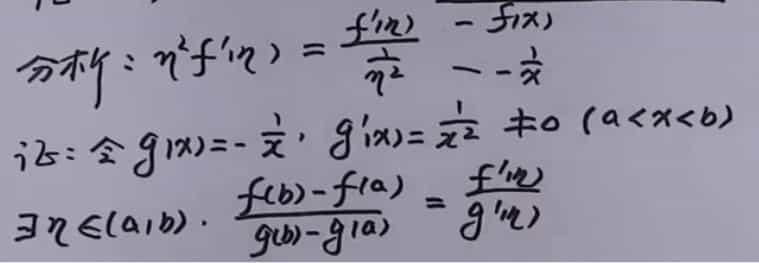 分析：η²f'(η) = f'(η) / (1/η²) — f(x) — -1/x
证：令 g(x) = -1/x，g'(x) = 1/x² ≠ 0 (a<x<b)
∃η∈(a,b). (f(b)-f(a)) / (g(b)-g(a)) = f'(η) / g'(η)